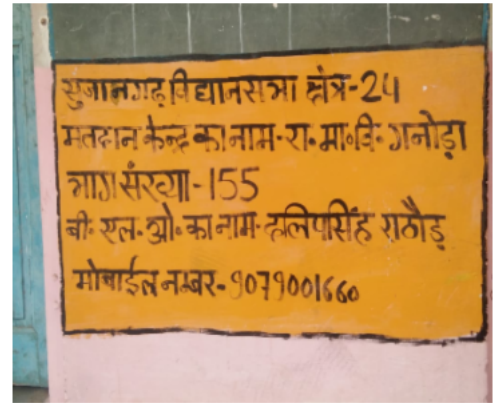 सुजानगढ़ विद्यानसभा क्षंत्र-24
मतदान केन्द्र का नाम-रा॰मा॰वि॰गनोड़ा
भाग संख्या-155
बी॰ एल॰ ओ॰ का नाम-दलिपसिंह राठौड़
मोबाईल नम्बर-9079001660